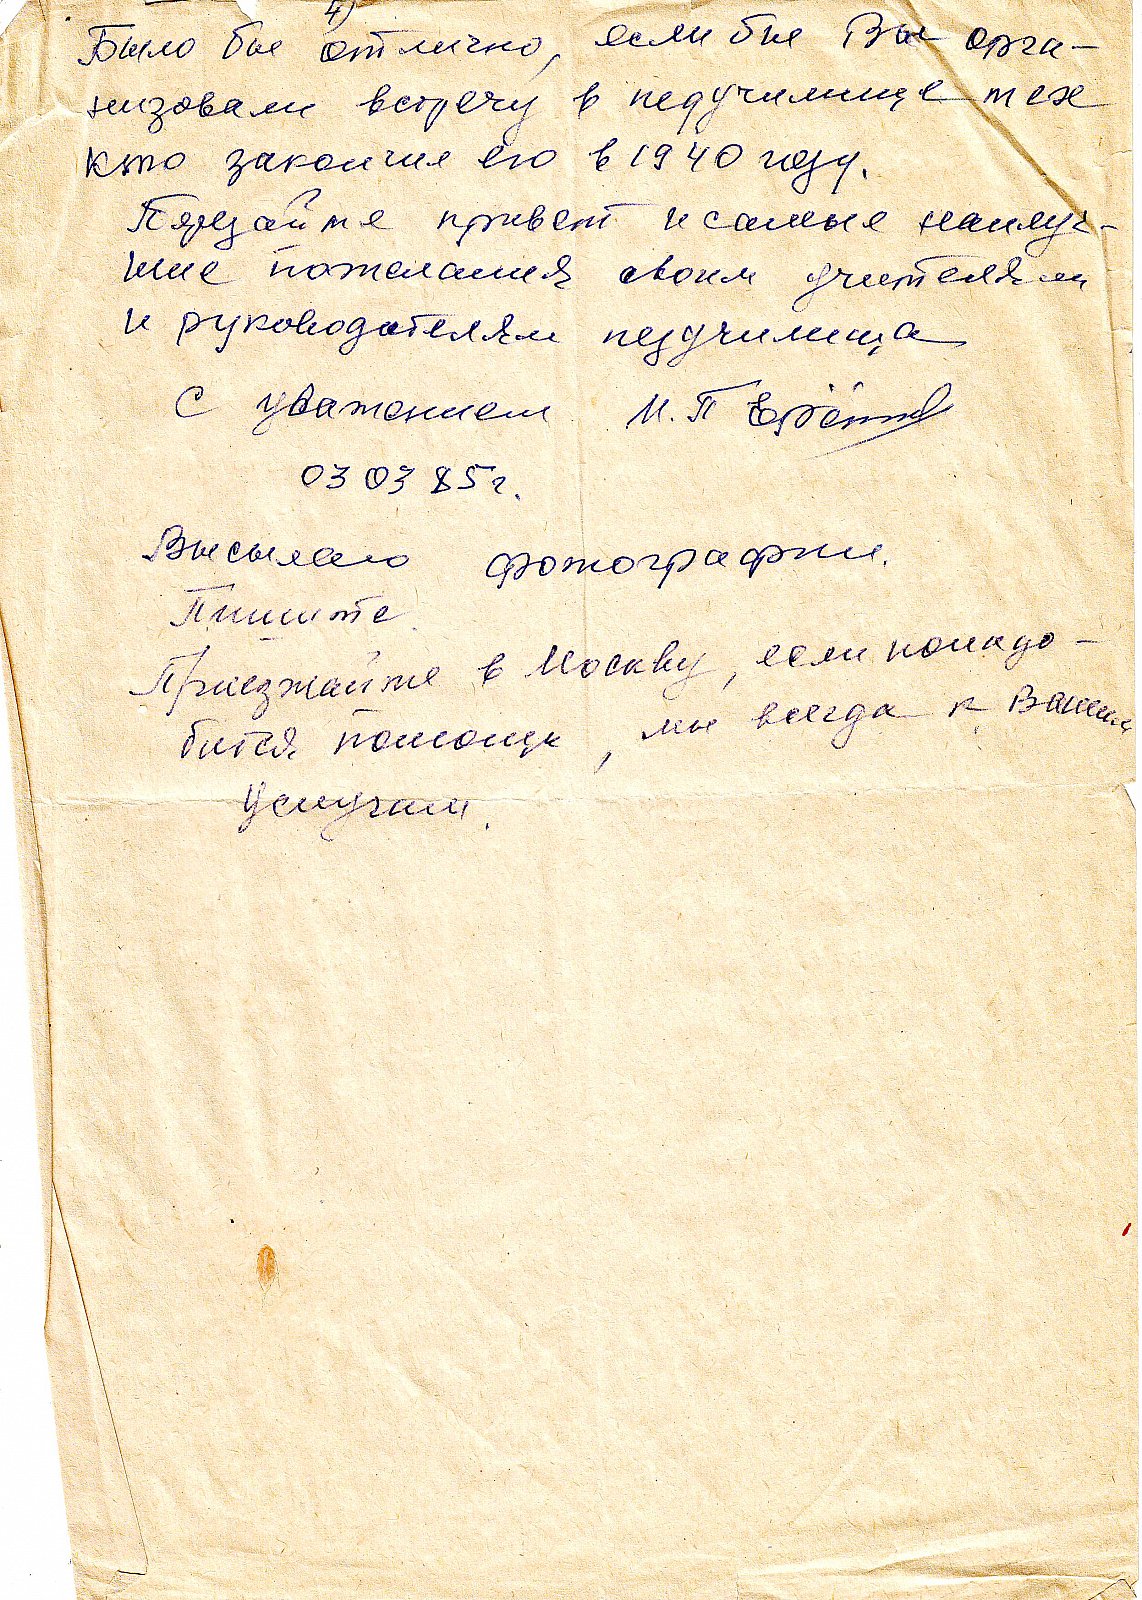 4)
Было бы отлично, если бы Вы орга-
низовали встречу в педучилище тех
кто закончил его в 1940 году.
Передайте привет и самые наилуч-
шие пожелания своим учителям
и руководителям педучилища
С уважением И.П
03 03 85 г.
Высылаю фотографии.
Пишите.
Приезжайте в Москву, если понадо-
бится помощь, мы всегда к Вашим
услугам.